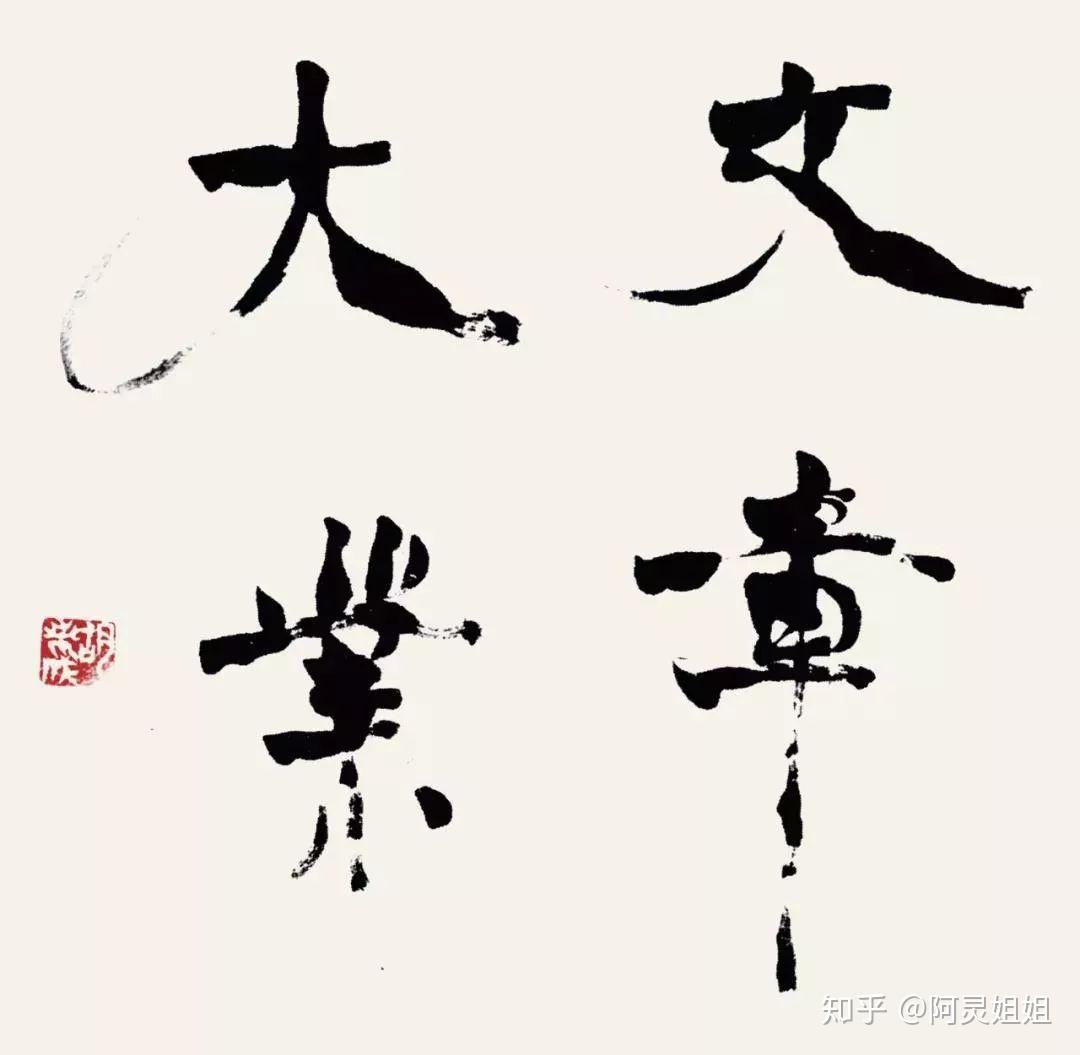 文章
大業
知乎 @阿灵姐姐